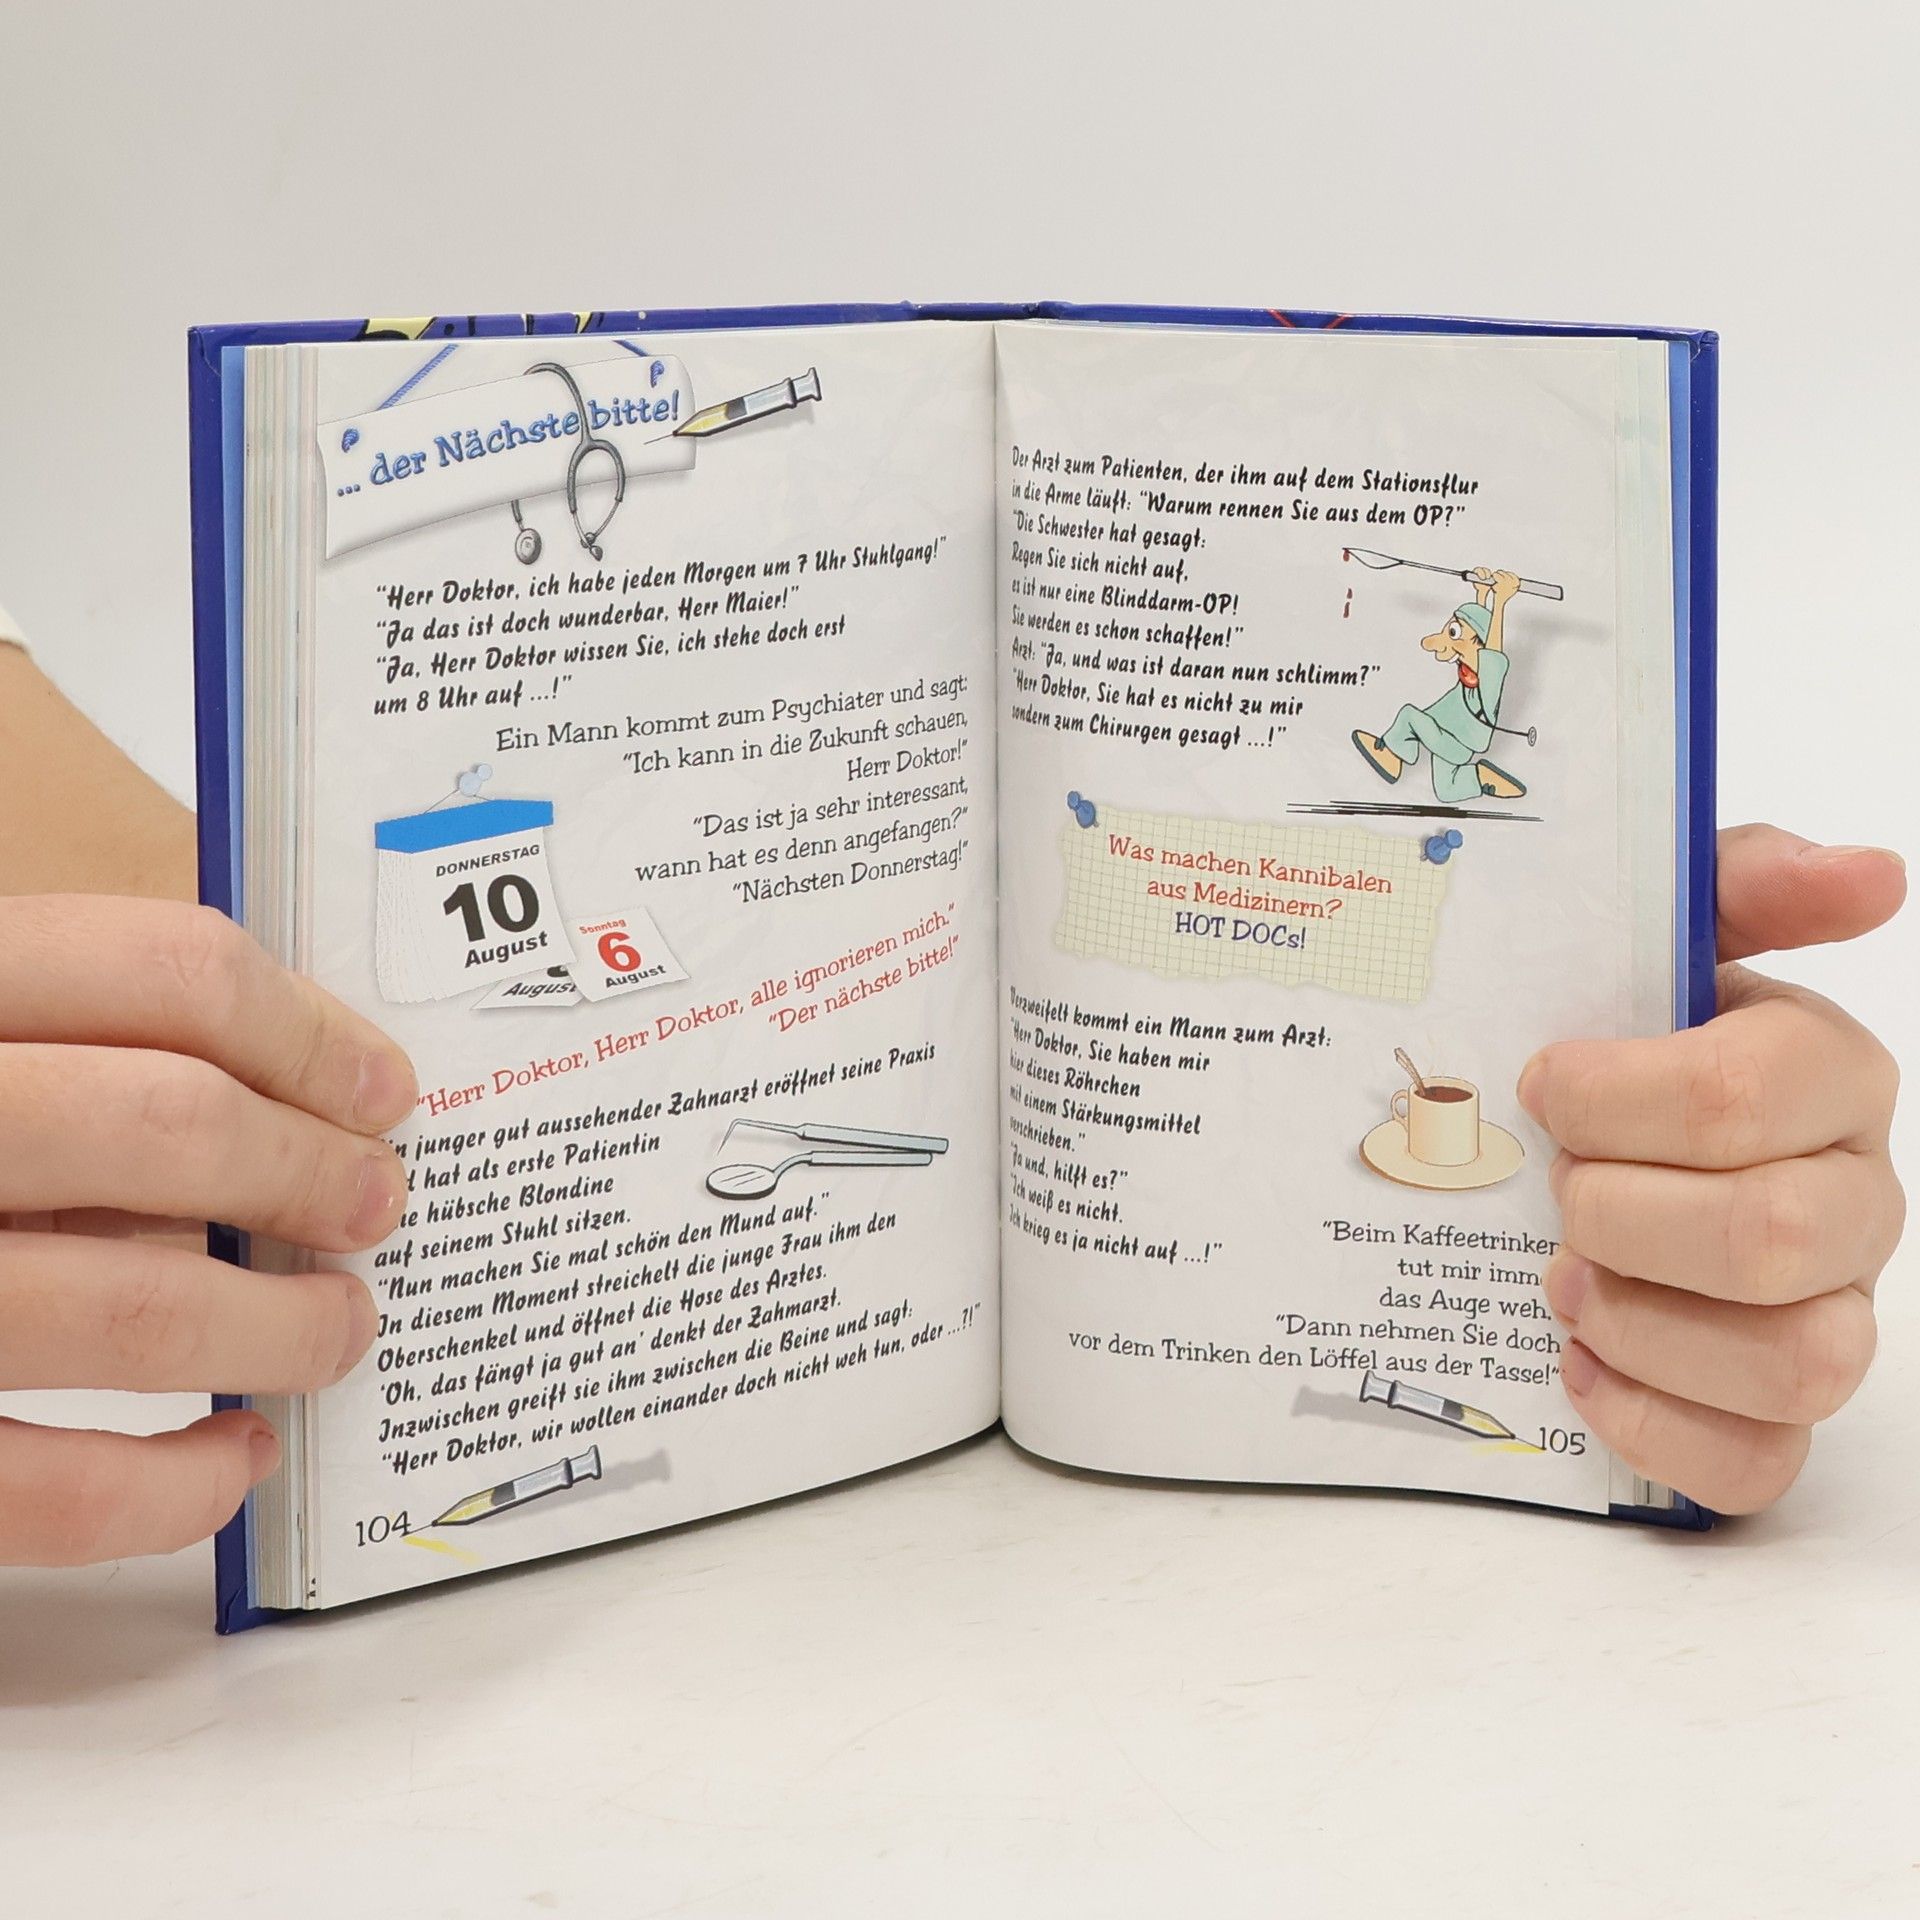 ... der Nächste bitte!
"Herr Doktor, ich habe jeden Morgen um 7 Uhr Stuhlgang!"
"Ja das ist doch wunderbar, Herr Maier!"
"Ja, Herr Doktor wissen Sie, ich stehe doch erst
um 8 Uhr auf ...!"
Ein Mann kommt zum Psychiater und sagt:
"Ich kann in die Zukunft schauen,
Herr Doktor!"
"Das ist ja sehr interessant,
wann hat es denn angefangen?"
"Nächsten Donnerstag!"
DONNERSTAG
10
August
Sonntag
6
August
August
"Herr Doktor, Herr Doktor, alle ignorieren mich."
"Der nächste bitte!"
junger gut aussehender Zahnarzt eröffnet seine Praxis
hat als erste Patientin
hübsche Blondine
auf seinem Stuhl sitzen.
"Nun machen Sie mal schön den Mund auf."
In diesem Moment streichelt die junge Frau ihm den
Oberschenkel und öffnet die Hose des Arztes.
'Oh, das fängt ja gut an' denkt der Zahmarzt.
Inzwischen greift sie ihm zwischen die Beine und sagt:
"Herr Doktor, wir wollen einander doch nicht weh tun, oder ...?!"
104
Der Arzt zum Patienten, der ihm auf dem Stationsflur
in die Arme läuft: "Warum rennen Sie aus dem OP?"
"Die Schwester hat gesagt:
Regen Sie sich nicht auf,
es ist nur eine Blinddarm-OP!
Sie werden es schon schaffen!"
Arzt: "Ja, und was ist daran nun schlimm?"
"Herr Doktor, Sie hat es nicht zu mir
sondern zum Chirurgen gesagt ...!"
Was machen Kannibalen
aus Medizinern?
HOT DOCs!
Verzweifelt kommt ein Mann zum Arzt:
"Herr Doktor, Sie haben mir
hier dieses Röhrchen
mit einem Stärkungsmittel
verschrieben."
"Ja und, hilft es?"
"Ich weiß es nicht.
Ich krieg es ja nicht auf ...!"
"Beim Kaffeetrinken
tut mir imm
das Auge weh.
"Dann nehmen Sie doch
vor dem Trinken den Löffel aus der Tasse!"
105